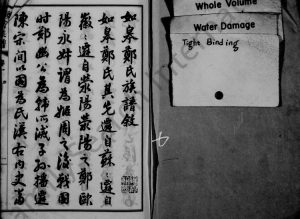 如皋鄭氏族譜敘
如皋鄭氏其先遷自蘇蘇遷自
徽徽遷自滎陽滎陽之鄭歐
陽永叔謂為姬周之後戰國
時鄭幽公為韓所滅子孫播遷
陳宋間以國為氏漢右內史當
Whole Volume
Water Damage
Tight Binding